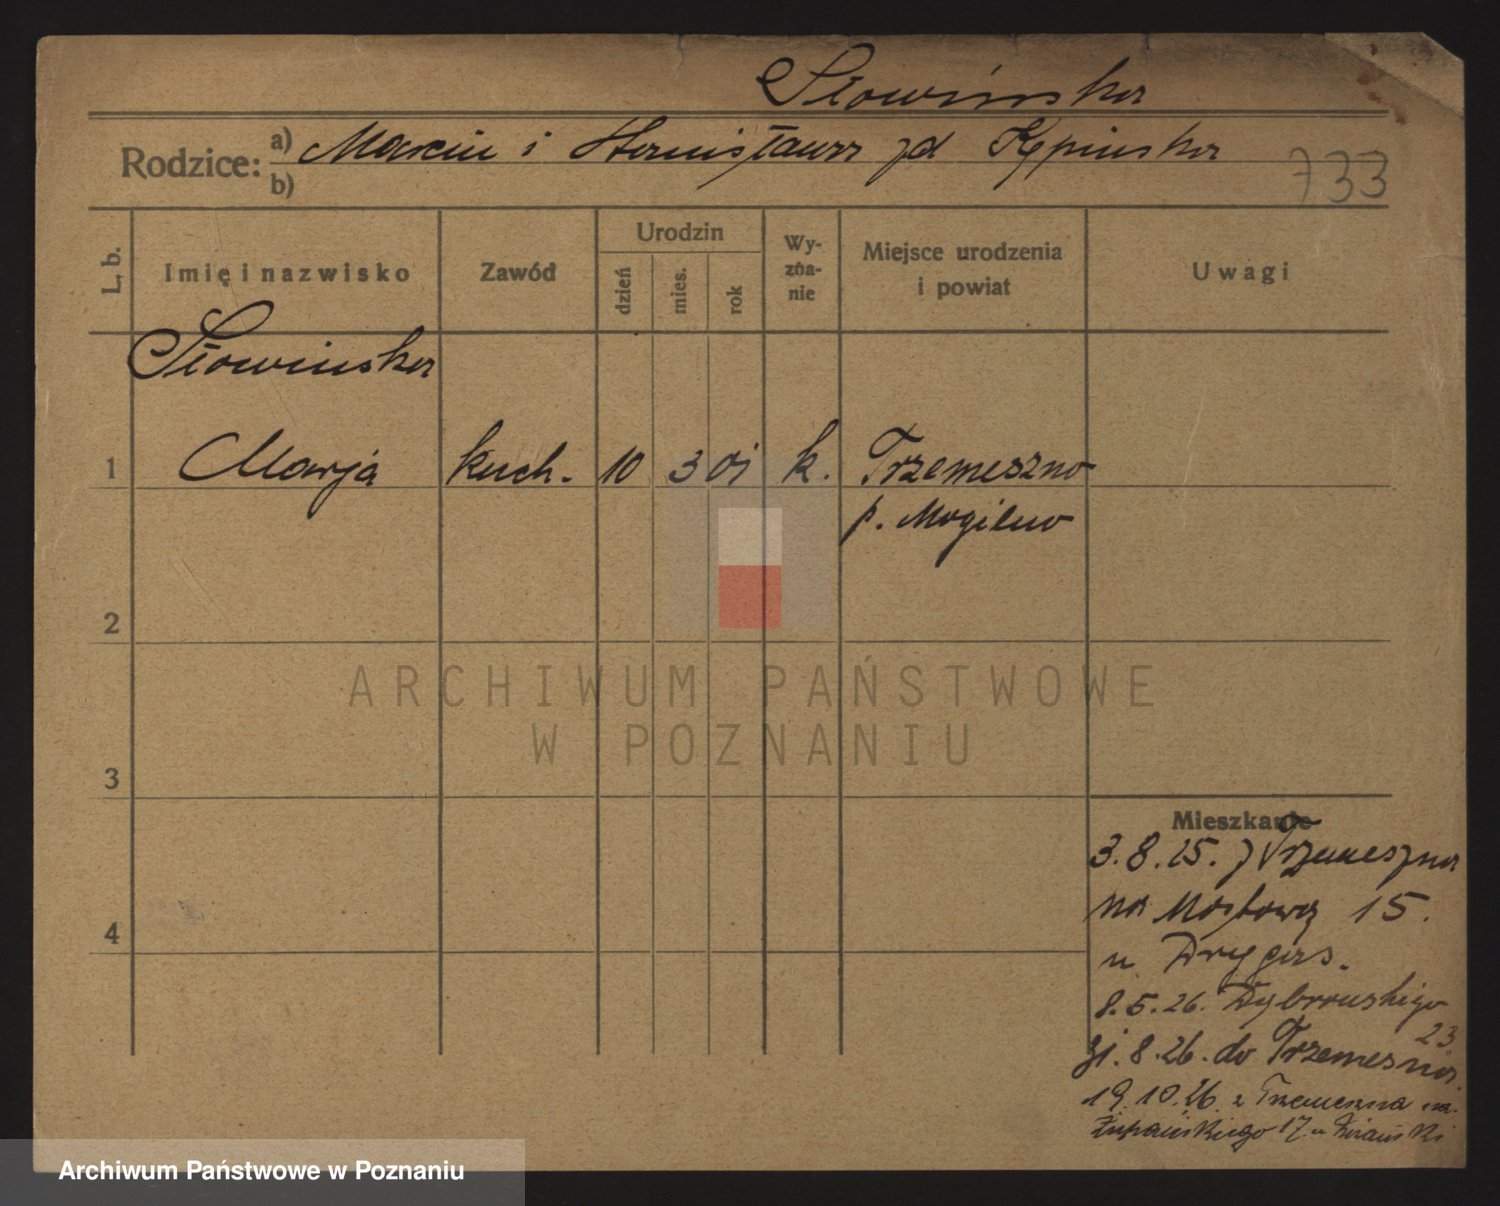 Słowińska
Rodzice:
a) Marcin i Stanisława zd Kępińska
b)
733
L. b.
Imię i nazwisko
Zawód
Urodzin
dzień
mies.
rok
Wy-
zna-
nie
Miejsce urodzenia
i powiat
Uwagi
Słowińska
1 Marja kuch. 10 3 01 k. Trzemeszno
p. Mogilno
2
3
4
Mieszkanie
3.8.25. z Trzemeszna
na Mostową 15.
u Drygas.
8.5.26. Dąbrowskiego
23
31.8.26. do Trzemeszna
19.10.26. z Trzemeszna na
Łupańskiego 17. u
ARCHIWUM PAŃSTWOWE
W POZNANIU
Archiwum Państwowe w Poznaniu